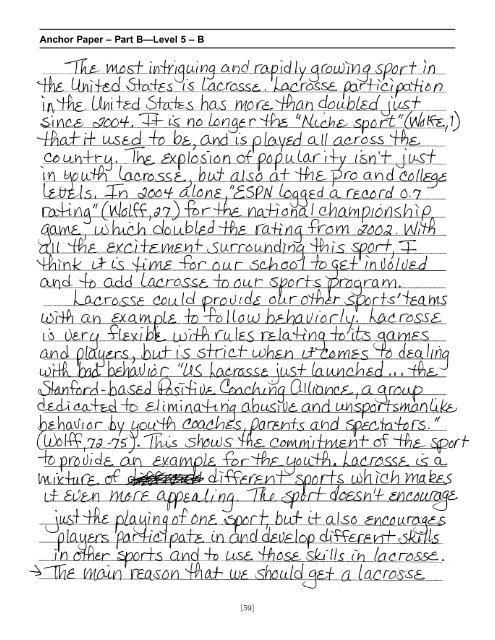 Anchor Paper – Part B—Level 5 – B
The most intriguing and rapidly growing sport in
the United States is lacrosse. Lacrosse participation
in the United States has more than doubled just
since 2004. It is no longer the "Niche sport" (Wolff,1)
that it used to be, and is played all across the
country. The explosion of popularity isn't just
in youth lacrosse, but also at the pro and college
levels. In 2004 alone, "ESPN logged a record 0.7
rating" (Wolff,27) for the national championship
game, which doubled the rating from 2002. With
all the excitement surrounding this sport, I
think it is time for our school to get involved
and to add lacrosse to our sports program.
Lacrosse could provide our other sports' teams
with an example to follow behaviorly. Lacrosse
is very flexible with rules relating to its games
and players, but is strict when it comes to dealing
with bad behavior "US Lacrosse just launched ... the
Stanford-based Positive Coaching Alliance, a group
dedicated to eliminating abusive and unsportsmanlike
behavior by youth coaches, parents and spectators."
(Wolff,72-75). This shows the commitment of the sport
to provide an example for the youth. Lacrosse is a
mixture of different sports which makes
it even more appealing. The sport doesn't encourage
just the playing of one sport, but it also encourages
players participate in and develop different skills
in other sports and to use those skills in lacrosse.
→ The main reason that we should get a lacrosse
[59]